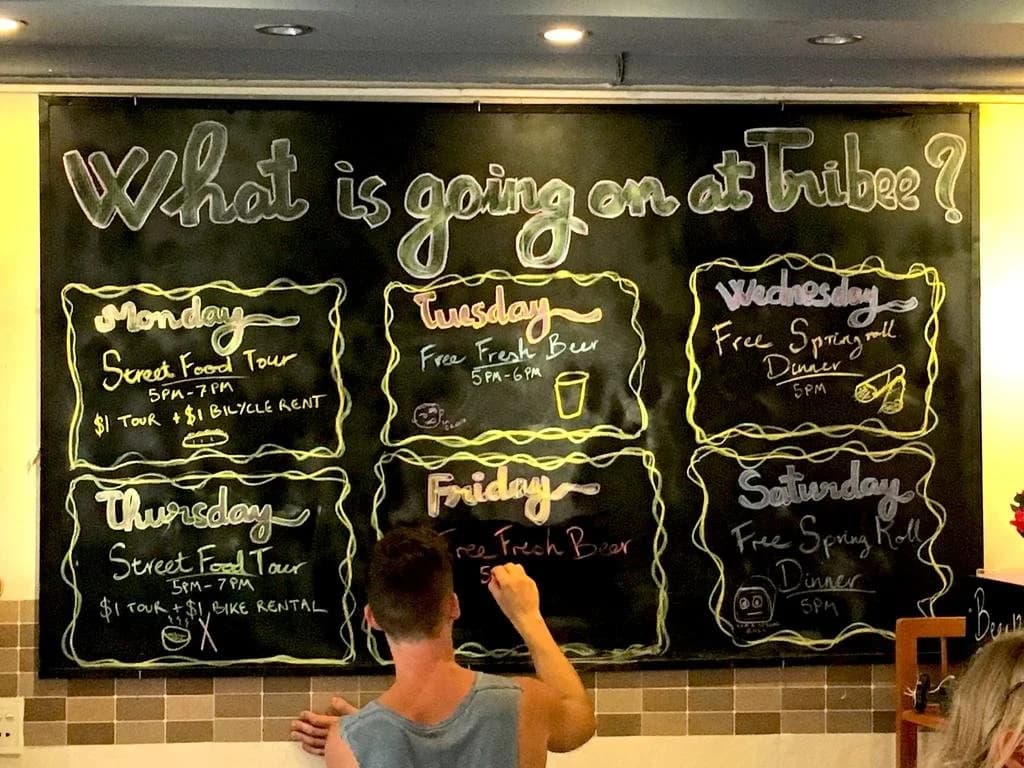 What is going on at Tribee?
Monday
Street Food Tour
5PM-7PM
$1 TOUR + $1 BILYCLE RENT
Tuesday
Free Fresh Beer
5PM-6PM
Wednesday
Free Spring roll
Dinner
5PM
Thursday
Street Food Tour
5PM-7PM
$1 TOUR + $1 BIKE RENTAL
Friday
Free Fresh Beer
5
Saturday
Free Spring Roll
Dinner
5PM